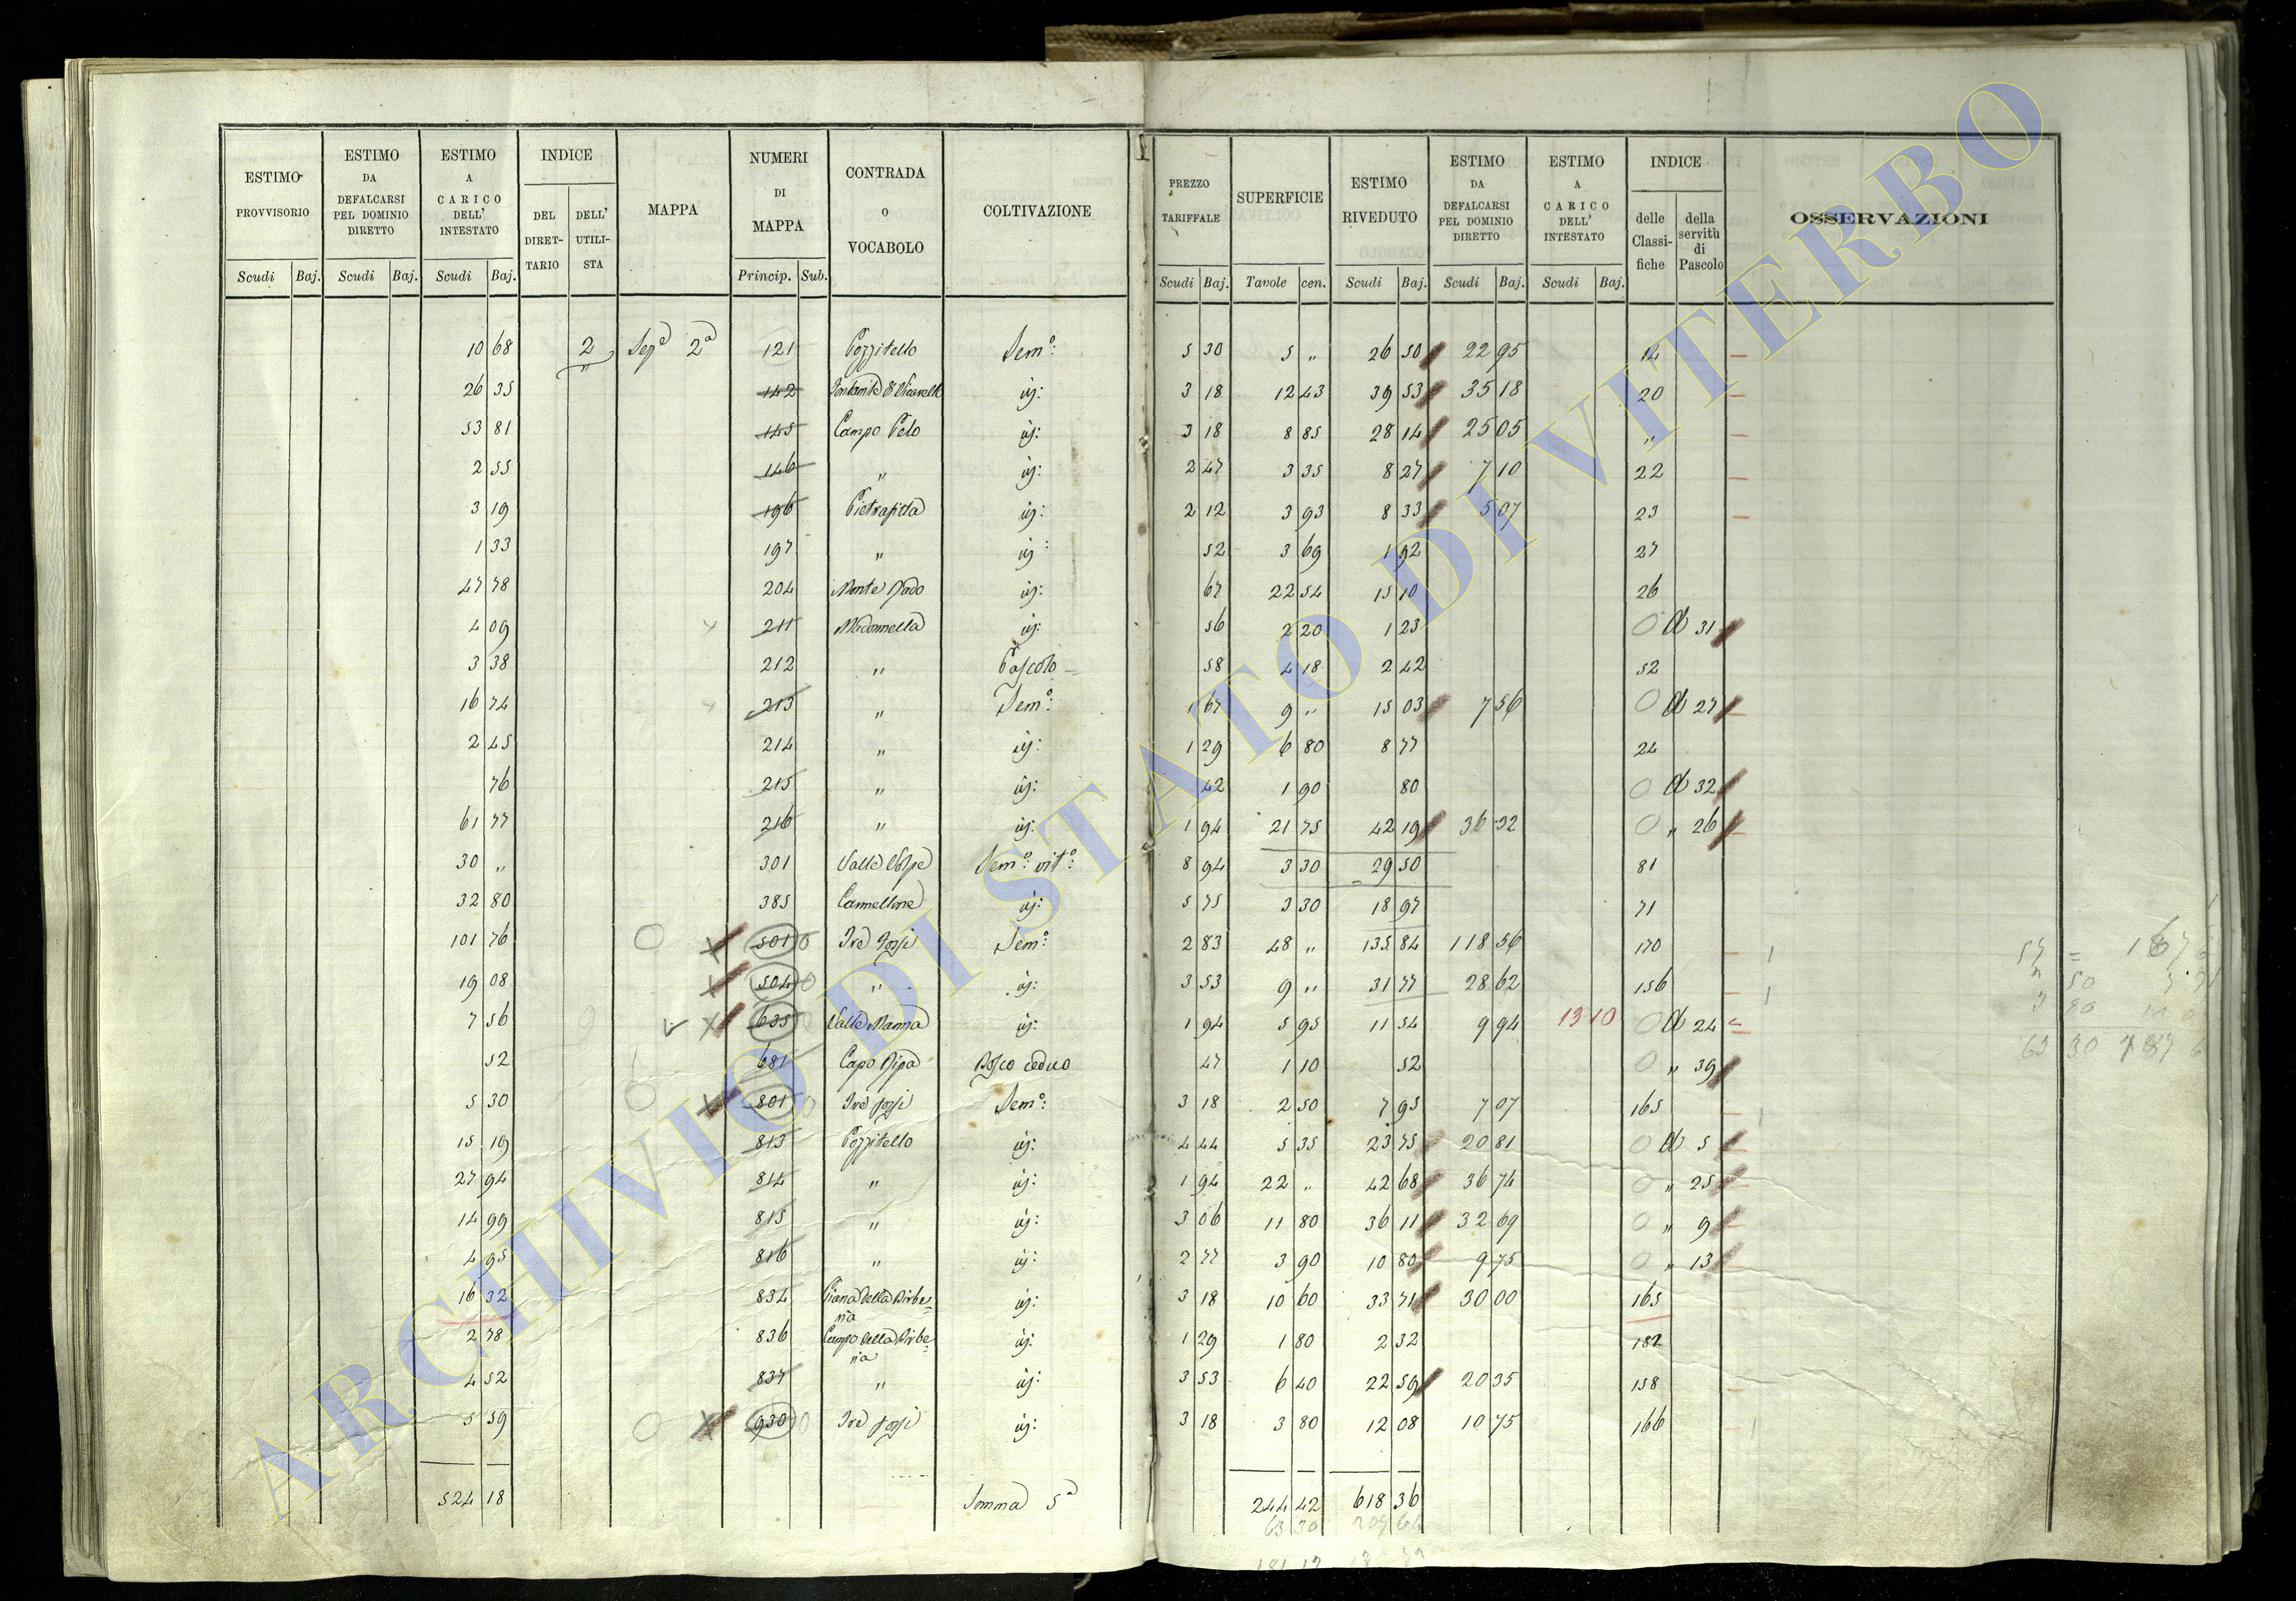 ESTIMO PROVVISORIO | ESTIMO DA DEFALCARSI PEL DOMINIO DIRETTO | ESTIMO A CARICO DELL' INTESTATO | INDICE DEL DIRETTARIO | DELL' UTILISTA | MAPPA | NUMERI DI MAPPA | CONTRADA O VOCABOLO | COLTIVAZIONE | PREZZO TARIFFALE | SUPERFICIE | ESTIMO RIVEDUTO | ESTIMO DA DEFALCARSI PEL DOMINIO DIRETTO | ESTIMO A CARICO DELL' INTESTATO | INDICE delle Classifiche | della servitù di Pascolo | OSSERVAZIONI
Scudi Baj. | Scudi Baj. | Scudi Baj. | Princip. Sub. | Scudi Baj. | Tavole cen. | Scudi Baj. | Scudi Baj. | Scudi Baj.
10 68 2 Sezᵉ 2ª 121 Pozzitello Semº: 5 30 5 „ 26 50 22 95 14
26 35 142 id: 3 18 12 43 39 53 35 18 20
53 81 145 Campo Pelo id: 3 18 8 85 28 14 25 05 „
2 55 146 „ id: 2 47 3 35 8 27 7 10 22
3 19 196 Pietrafitta id: 2 12 3 93 8 33 5 07 23
1 33 197 „ id: 52 3 69 1 92 27
47 78 204 Monte Rado id: 67 22 54 15 10 26
4 09 211 Madonnella id: 56 2 20 1 23 31
3 38 212 „ Pascolo 58 4 18 2 42 52
16 74 213 „ Semº: 1 67 9 „ 15 03 7 56 27
2 45 214 „ id: 1 29 6 80 8 77 24
76 215 „ id: 42 1 90 80 32
61 77 216 „ id: 1 94 21 75 42 19 36 32 „ 26
30 „ 301 Valle Volpe Semº: vitº: 8 94 3 30 29 50 81
32 80 385 Cannellone id: 5 75 3 30 18 97 71
101 76 501 Tre Pozzi Semº: 2 83 48 „ 135 84 118 56 170
19 08 504 „ id: 3 53 9 „ 31 77 28 62 156
7 56 635 Valle Manna id: 1 94 5 95 11 54 9 94 13 10 24
52 681 Capo Ripa Bosco ceduo 47 1 10 52 „ 39
5 30 801 Tre pozzi Semº: 3 18 2 50 7 95 7 07 165
15 19 813 Pozzitello id: 4 44 5 35 23 75 20 81 5
27 94 814 „ id: 1 94 22 „ 42 68 36 74 „ 25
14 99 815 „ id: 3 06 11 80 36 11 32 69 „ 9
4 95 816 „ id: 2 77 3 90 10 80 9 75 „ 13
16 32 834 Piana della Birberia id: 3 18 10 60 33 71 30 00 165
2 78 836 Campo della Birberia id: 1 29 1 80 2 32 182
4 52 837 „ id: 3 53 6 40 22 59 20 35 158
5 59 930 Tre pozzi id: 3 18 3 80 12 08 10 75 166
524 18 Somma 5ª 244 42 618 36
63 30
ARCHIVIO DI STATO DI VITERBO